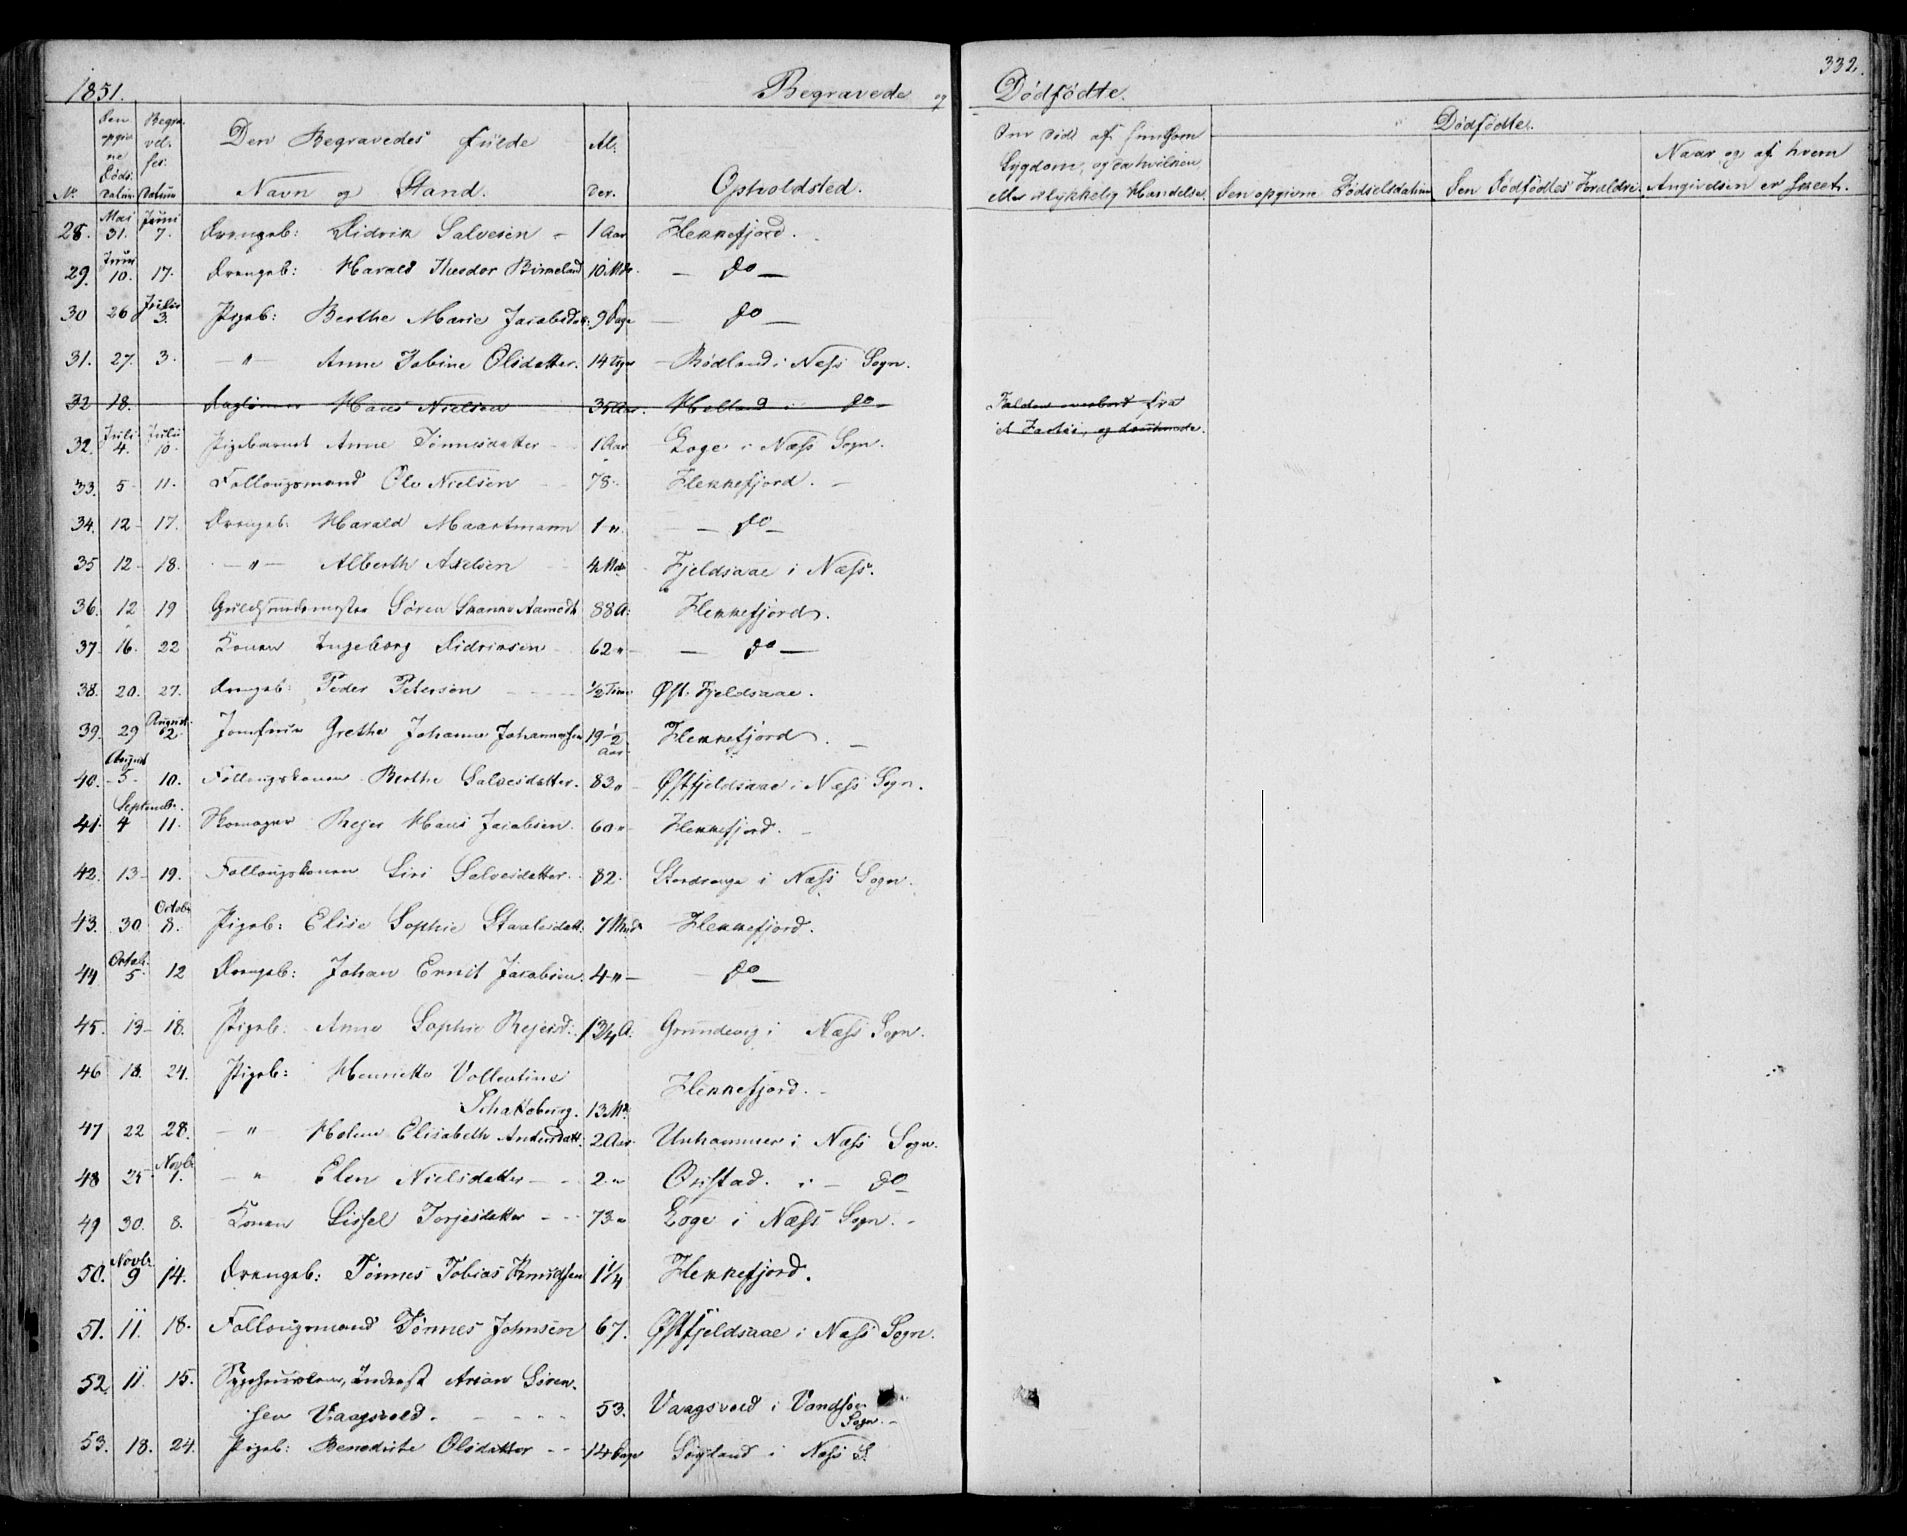 1851.
Begravede og Dødfødte.
332.
No.
Den opgivne Døds-Datum
Begravelses-Datum
Den Begravedes fulde Navn og Stand.
Alder.
Opholdsted.
Om død af smitsom Sygdom, og da hvilken, eller ulykkelig Hændelse.
Dødfødte.
Den opgivne Fødselsdatum
Den Dødfødtes Forældre.
Naar og af hvem Angivelsen er skeet.
28. Mai 31. Juni 7. Drengeb: Didrik Salvesen - 1 Aar Flekkefjord.
29. Juni 10. 17. Drengeb: Harald Theodor Birkeland 10 Mdr - do -
30 26 Julii 3. Pigeb: Berthe Marie Jacobsdat: 9 Dage - do -
31. 27. 3. -"- Anne Jobine Olsdatter. 14 Dge - Rødland i Næss Sogn.
32 18. Dagleiner Hans Nielsen 35 Aar. Holland i do Falden overbord fra
et Fartøi, og druknede.
32. Juli 4. Julii 10. Pigebarnet Anne Tønnesdatter - 1 Aar Loge i Næss Sogn.
33. 5 11. Follougsmand Ole Nielsen - 78. Flekkefjord. -
34. 12 - 17. Drengeb. Harald Maartmann 1 -". - do -
35 12 - 18. -"- Alberth Axelsen - 4 Mdr Fjeldsaae i Næss.
36. 12 19 Guldsmedemester Søren Skanke Aamodt 88 A: Flekkefjord.
37. 16. 22 Konen Ingeborg Didriksen - 62 -"- - do -
38. 20. 27. Drengeb: Peder Petersen - - - ½ Time Øst. Fjeldsaae.
39. 29 August. 2. Jomfrue Grethe Johanne Johannessen 19½ Aar Flekkefjord. -
40. August 5. 10. Follougskonen Berthe Salvesdatter. 83 " Østfjeldsaae i Næss Sogn.
41. Septembr. 4 11. Skomager Rejer Hans Jacobsen. 60 -"- Flekkefjord. -
42. 13 - 19. Follougskonen Siri Salvesdatter. 82. Stordrange i Næss Sogn.
43. 30 Octobr 8. Pigeb: Elise Sophie Staalesdatt. 7 Mnd Flekkefjord.
44 Octob. 5. 12 Drengeb: Johan Ernst Jacobsen. 4 -"- - do -
45. 13 - 18. Pigeb: Anne Sophie Rejersd: 1 3/4 A. Grundevig i Næss Sogn.
46 18. 24. Pigeb: Henriette Vollentine
Schatteburg. 13 Md. Flekkefjord. -
47 22 28. -"- Helene Elisabeth Andersdatt. 2 Aar Unhammer i Næss Sogn.
48 25 Novb. 1. -"- Elen Nielsdatter - - 2 -" Oustad. i - do -
49 30. 8. Konen Sissel Torjesdatter - - 73 -" Loge i Næss Sogn. -
50. Novb. 9 14. Drengeb: Tønnes Tobias Knudssen 1 1/4 Flekkefjord.
51. 11. 18. Follougsmand Tønnes Johnsen 67. Østfjeldsaae i Næss Sogn.
52. 11. 15. Arian Sören-
sen Vaagsvold. - - - - 53. Vaagsvold i Vandsøe Sogn. -
53. 18. 24. Pigeb: Benedicte Olsdatter - - 14 Dage Søyland i Næss S.